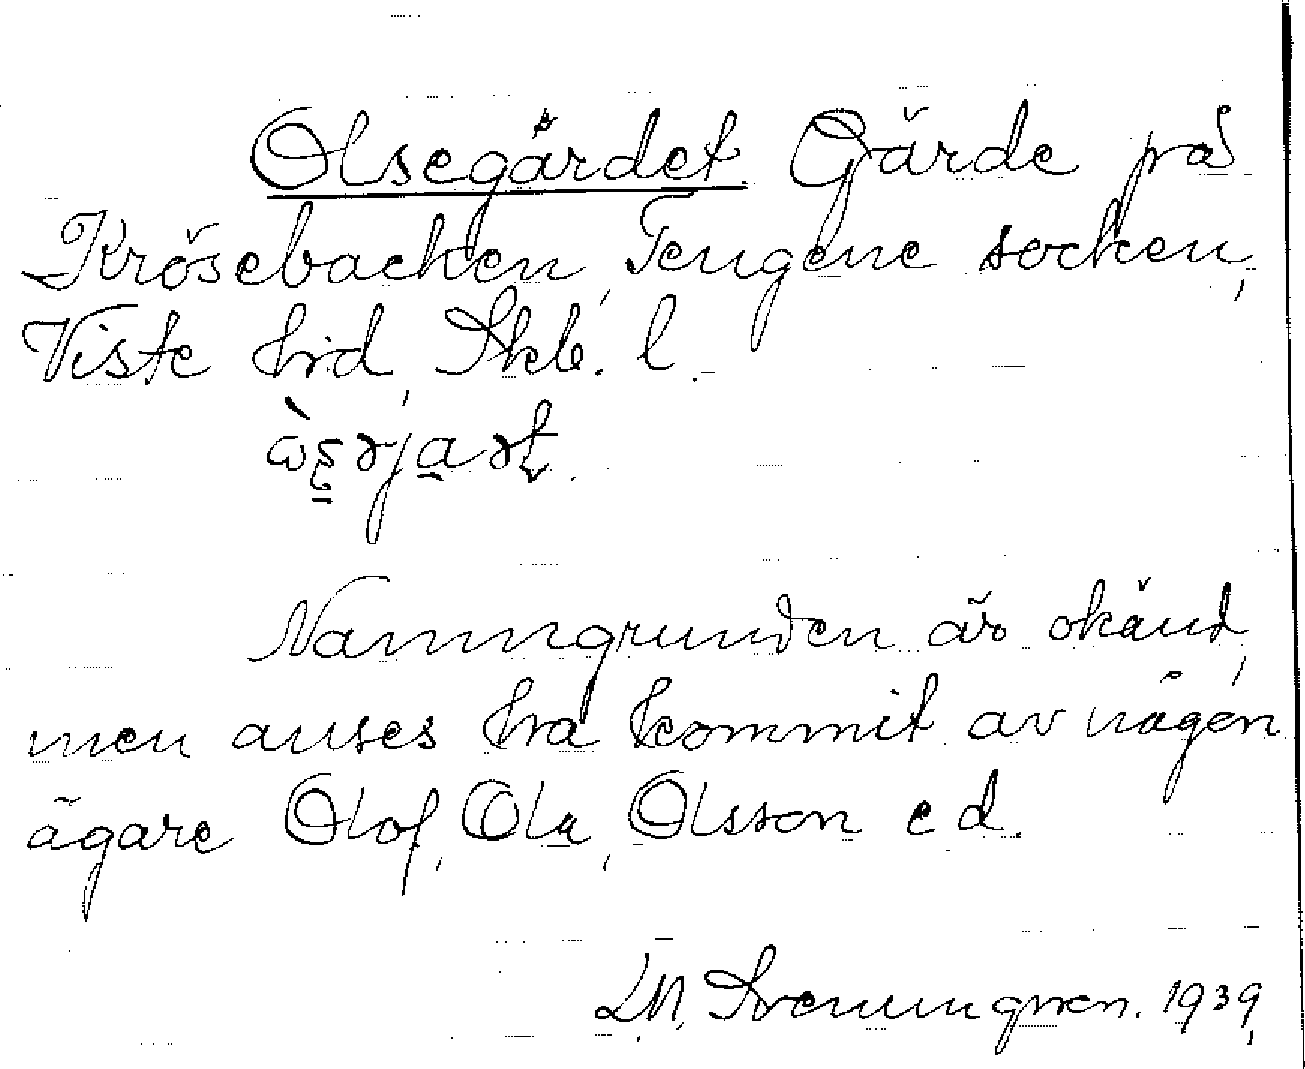 Olsegärdet. Gärde på
Krösebacken, Tengene socken,
Viste hrd, Skb. l.
Namngrunden är okänd,
men anses ha kommit av någon
ägare Olof, Ola, Olsson e d.
1939,